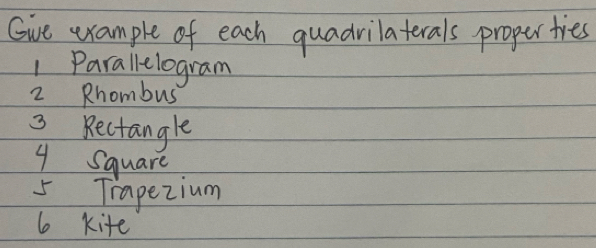 Give example of each quadrilaterals properties
1 Parallelogram
2 Rhombus
3 Rectangle
4 Square
5 Trapezium
6 Kite